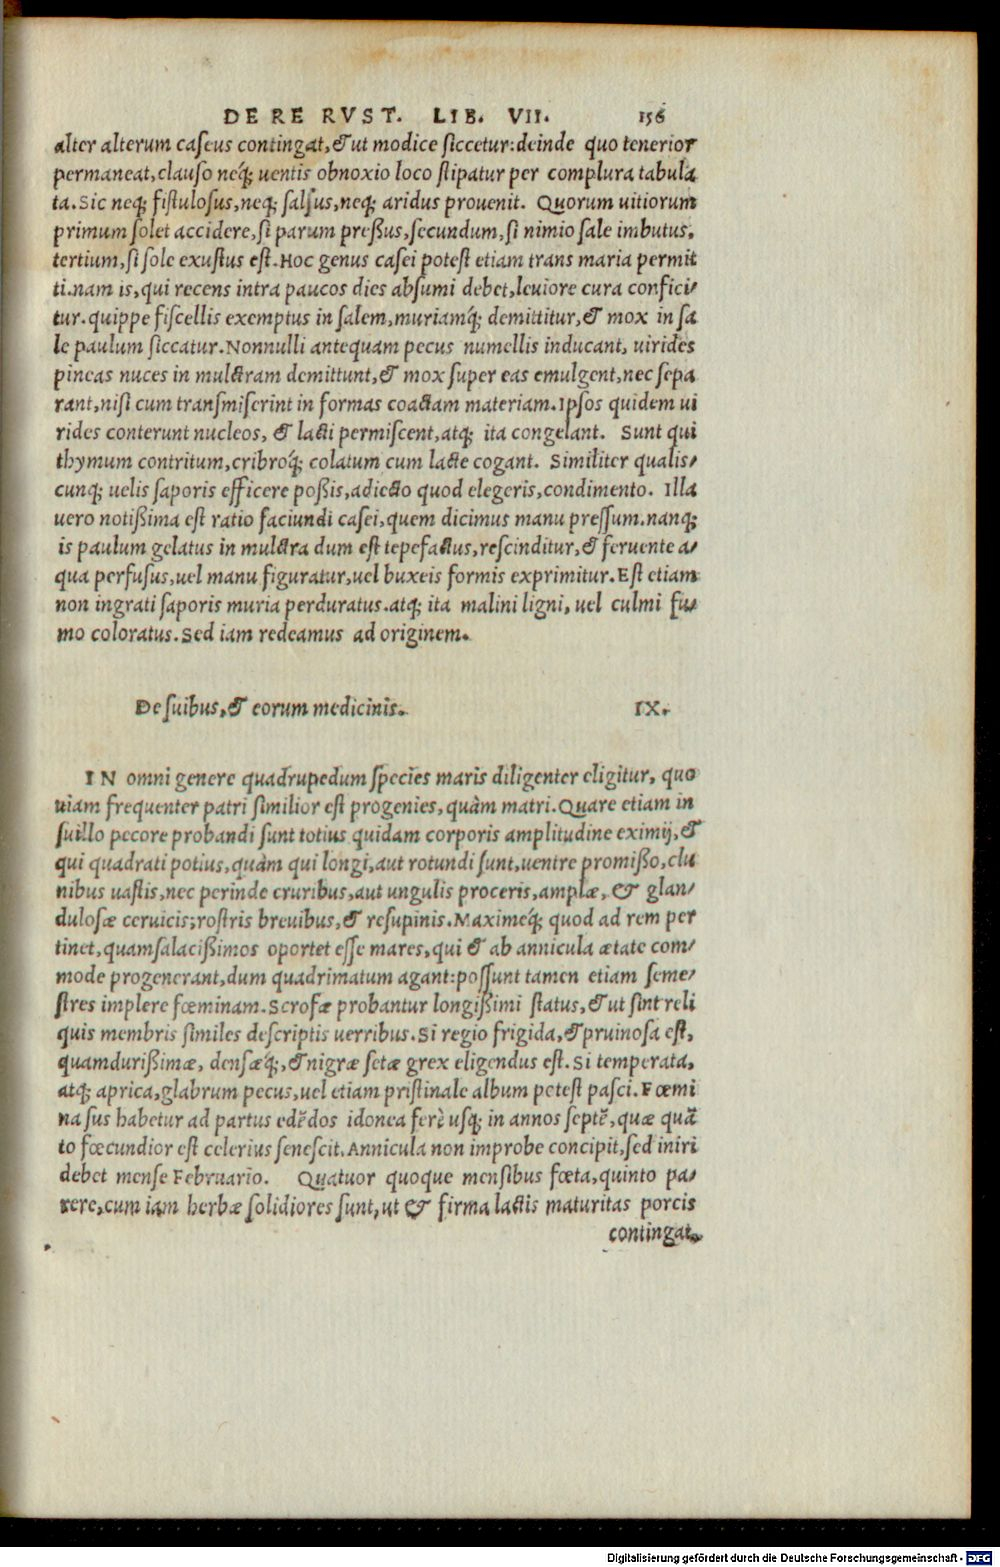 DE RE RVST. LIB. VII. 156
alter alterum caseus contingat, & ut modice siccetur: deinde quo tenerior
permaneat, clauso neq́; uentis obnoxio loco stipatur per complura tabula
ta. Sic neq; fistulosus, neq; salsus, neq; aridus prouenit. Quorum uitiorum
primum solet accidere, si parum preßus, secundum, si nimio sale imbutus,
tertium, si sole exustus est. Hoc genus casei potest etiam trans maria permit
ti. nam is, qui recens intra paucos dies absumi debet, leuiore cura confici-
tur. quippe fiscellis exemptus in salem, muriamq́; demittitur, & mox in sa
le paulum siccatur. Nonnulli antequam pecus numellis inducant, uirides
pineas nuces in mulctram demittunt, & mox super eas emulgent, nec sepa
rant, nisi cum transmiserint in formas coactam materiam. Ipsos quidem ui
rides conterunt nucleos, & lacti permiscent, atq; ita congelant. Sunt qui
thymum contritum, cribroq́; colatum cum lacte cogant. Similiter qualis-
cunq; uelis saporis efficere poßis, adiecto quod elegeris, condimento. Illa
uero notißima est ratio faciundi casei, quem dicimus manu pressum. nanq;
is paulum gelatus in mulctra dum est tepefactus, rescinditur, & feruente a-
qua perfusus, uel manu figuratur, uel buxeis formis exprimitur. Est etiam
non ingrati saporis muria perduratus. atq; ita malini ligni, uel culmi fu-
mo coloratus. Sed iam redeamus ad originem.
De suibus, & eorum medicinis. IX.
IN omni genere quadrupedum species maris diligenter eligitur, quo
niam frequenter patri similior est progenies, quàm matri. Quare etiam in
suillo pecore probandi sunt totius quidam corporis amplitudine eximij, &
qui quadrati potius, quàm qui longi, aut rotundi sunt, uentre promißo, clu
nibus uastis, nec perinde cruribus, aut ungulis proceris, amplæ, & glan-
dulosæ ceruicis; rostris breuibus, & resupinis. Maximeq́; quod ad rem per
tinet, quamsalacißimos oportet esse mares, qui & ab annicula ætate com-
mode progenerant, dum quadrimatum agant: possunt tamen etiam seme-
stres implere fœminam. Scrofæ probantur longißimi status, & ut sint reli
quis membris similes descriptis uerribus. Si regio frigida, & pruinosa est,
quamdurißimæ, densæq́;, & nigræ setæ grex eligendus est. Si temperata,
atq; aprica, glabrum pecus, uel etiam pristinale album potest pasci. Fœmi
na sus habetur ad partus edẽdos idonea ferè usq; in annos septẽ, quæ quã
to fœcundior est celerius senescit. Annicula non improbe concipit, sed iniri
debet mense Februario. Quatuor quoque mensibus fœta, quinto pa-
rere, cum iam herbæ solidiores sunt, ut & firma lactis maturitas porcis
contingat.
Digitalisierung gefördert durch die Deutsche Forschungsgemeinschaft - DFG